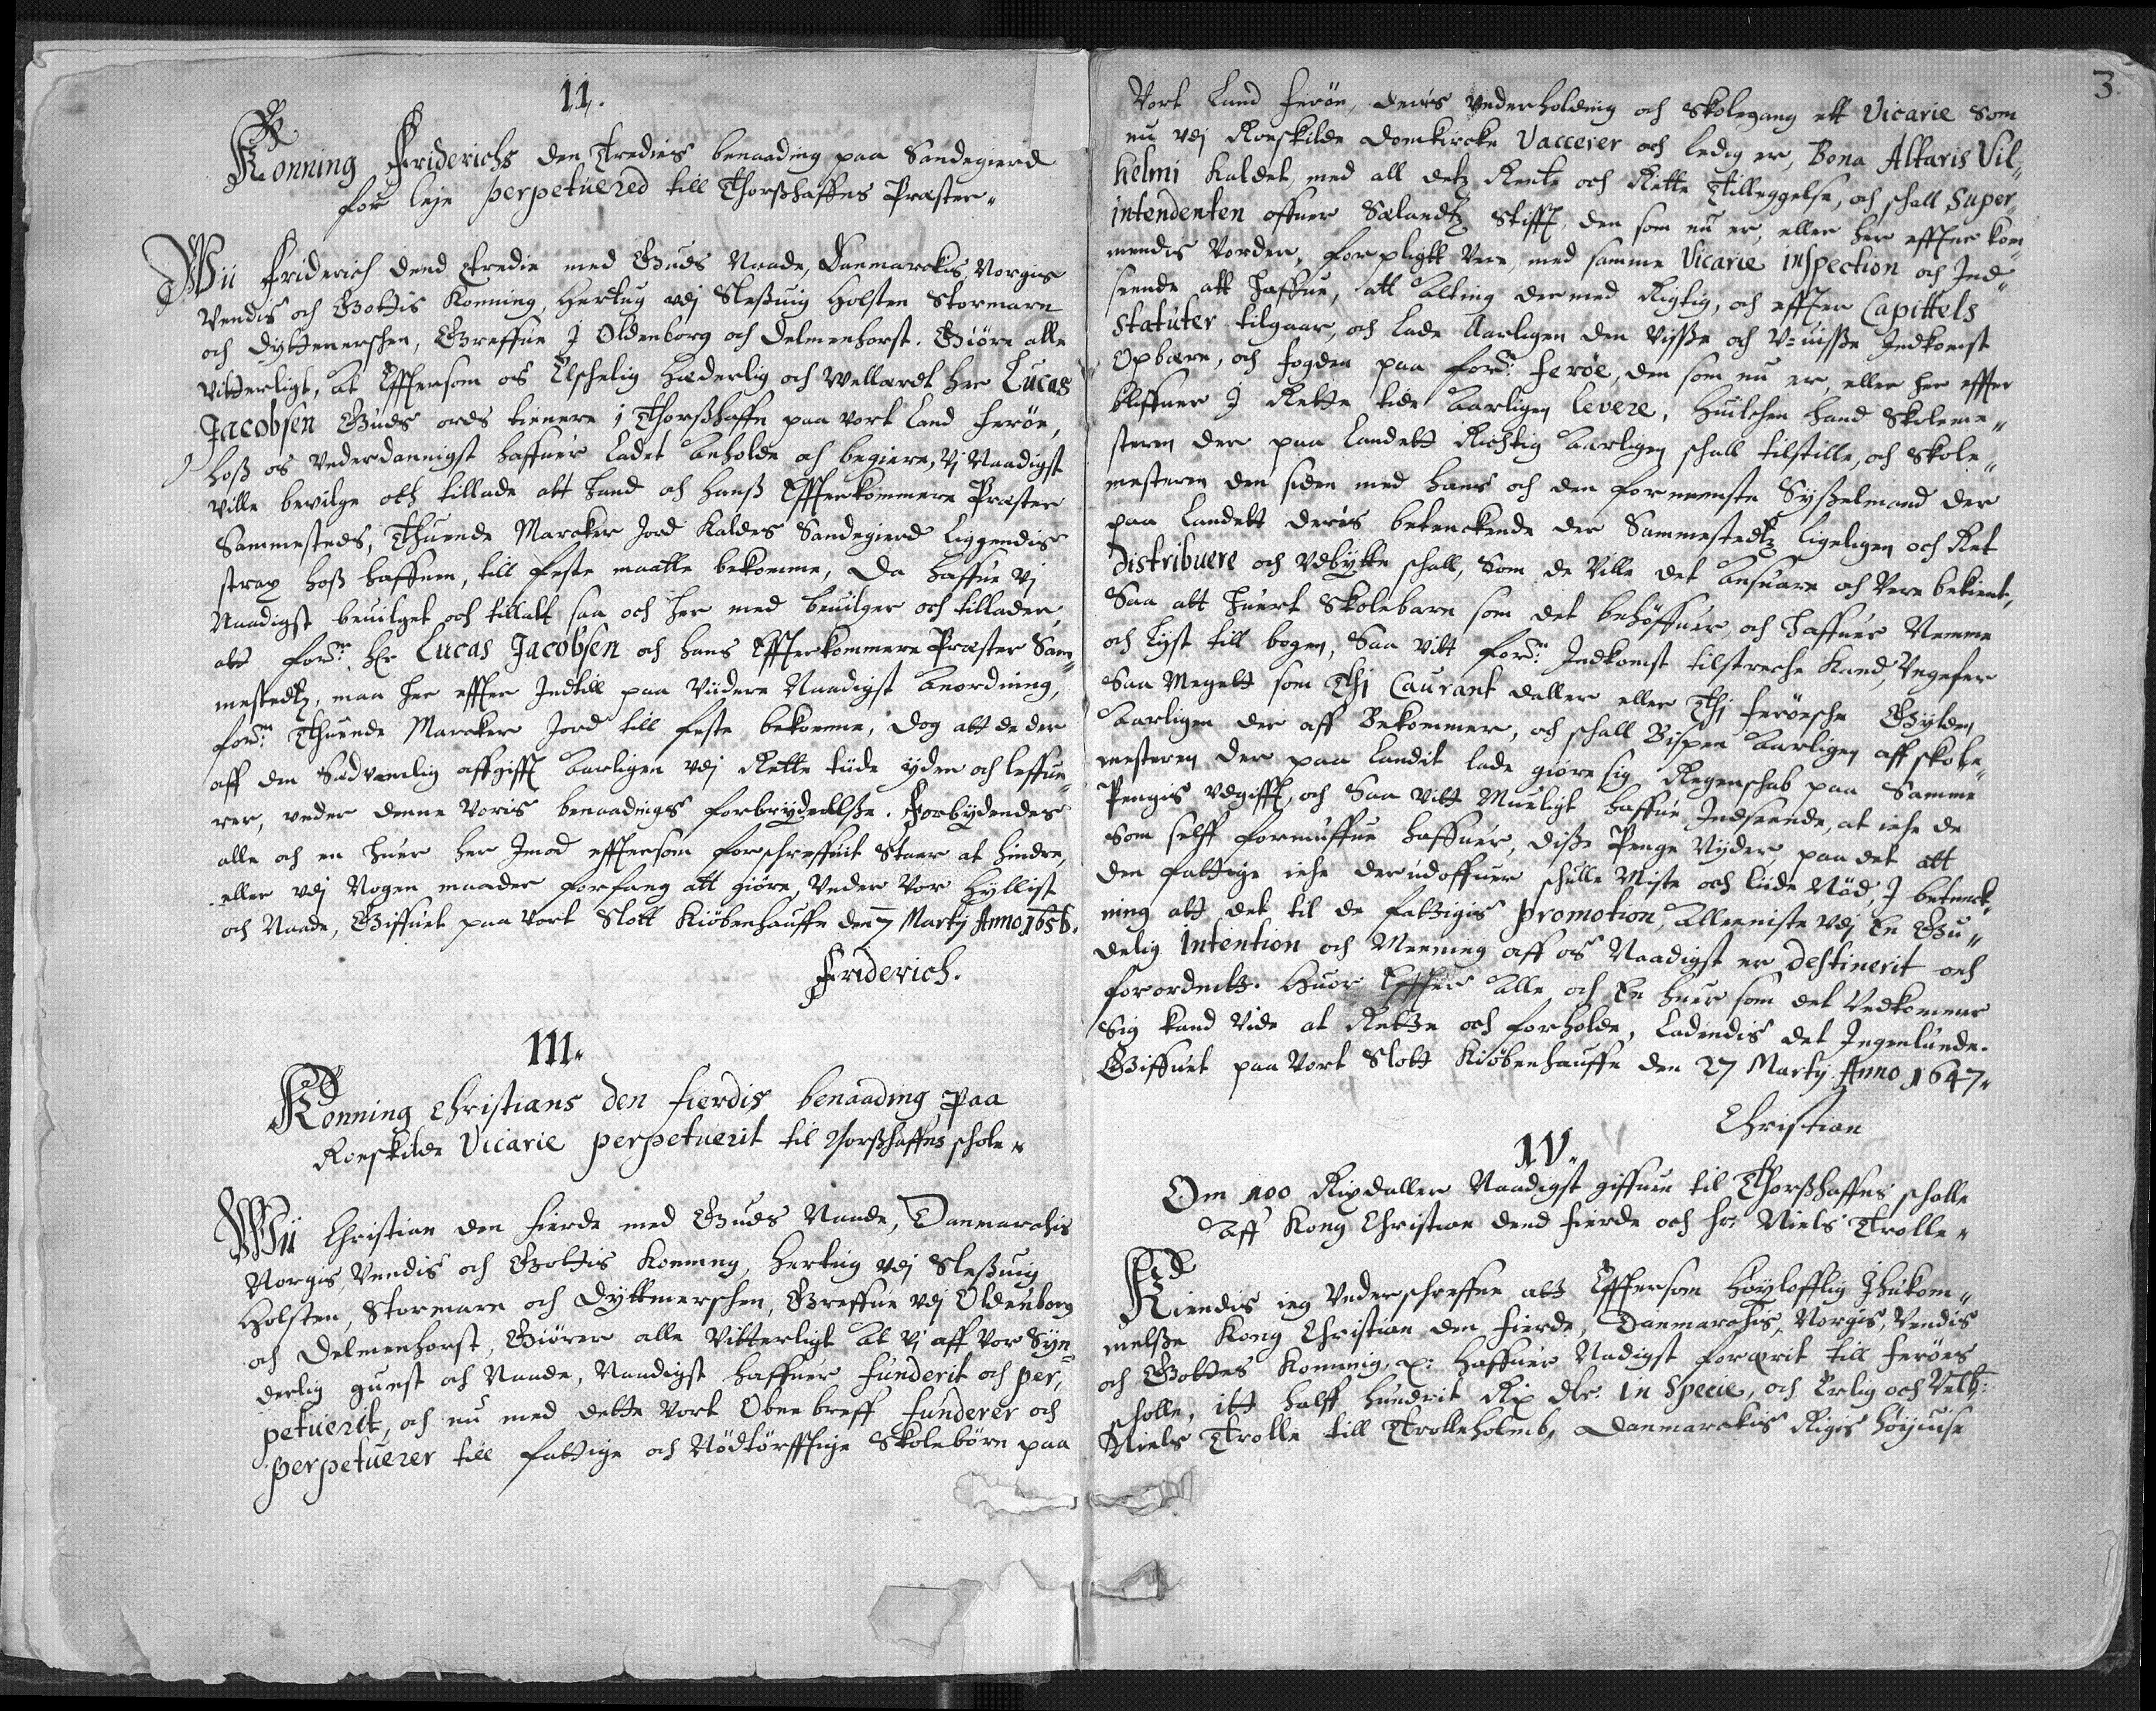 II.
Konning Friderichs den Tredies benaading paa Sandegierd
for leje perpetuered till Thorßhaffns Præster„
Wii Friderich dend Tredie med Guds Naade, Danmarckis, Norgis
Vendis och Gottis Konning, Hertug udj Sleßuig Holsten Stormarn
och Dyttmerschen, Greffue J Oldenborg och Delmenhorst. Giöre alle
vitterligt, At Effterson os Elschelig Hæderlig och Wellærdt her Lucas
Jacobsen Guds ords tienere i Thorßhaffn paa vort Land Feröe,
hoß os Underdannigst haffuer Ladet Anholde och begiere, Vj Naadigst
ville bevilge och tillade att hand och hanß Effterkommere Præster
Sammesteds, Thuende Marcker Jord kaldes Sandegierd Liggendis
strax hoß haffnen, till Feste maatte bekomme, Da haffue Vj
Naadigst beuilget och tilladt saa och her med beuilger och tillader,
att ford: Hr Lucas Jacobsen och hans Effterkommere Præster Sam„
mestedtz, maa her effter Indtill paa Viidere Naadigst Anordning,
ford: Thuende Marcker Jord till feste bekomme, dog att de der
aff den Sædvanlig affgifft Aarligen udj Rette tiide yder och leffue„
rer, under denne Voris benaadings forbrydellße. Forbydendes
alle och en huer her Imod efftersom forschreffuit Staar at hindre,
eller udj Nogen maader forfang att giöre, Under Vor Hyllist
och Naade, Giffuet paa vort Slott Kiöbenhauffn den 7 Martij Anno 1656.
Friderich.
III„
Konning Christians den Fierdis benaading paa
Roeskilde Vicarie perpetuerit til Thorßhaffns schole„
Wii Christian den Fierde med Guds Naade, Danmarchis
Norgis, Vendis och Gottis Konning, Hertug udj Sleßuig
Holsten, Stormarn och Dyttmerschen, Greffue udj Oldenborg
och Delmenhorst, Giörer alle Vitterligt At Vj aff vor Syn„
derlig gunst och Naade, Naadigst haffuer funderit och per„
petuerit, och nu med dette vort Obne breff funderer och
perpetuerer till fattige och Nödtörfftige Skolebörn paa
3.
Vort Land Feröe, deris Underholding och Skolegang ett Vicarie som
nu udj Roeskilde Domkircke Vaccerer och ledig er, Bona Altaris Vil„
helmi Kaldet, med all detz Rente och Rette Tilleggelse, och schall Super
intendenten offuer Sælandtz Stifft, den som nu er, eller her effter kom„
mendis vorder, forpligtt Vere, med samme Vicarie inspection och Ind„
seende att haffue, att Alting der med Rigtig, och effter Capittels
Statuter tilgaar, och Lade Aarligen den Visße och U=uisße Indkomst
Opbære, och fogden paa ford: Ferøe, den som nu er, eller her effter
bliffuer J Rette tide Aarligen levere, Huilchen hand Skoleme„
steren der paa Landett Richtig Aarligen schall tilstille, och Skole„
mesteren den siden med hans och den fornemste Syßelmand der
paa Landett deris betenckende der Sammestedtz ligeligen och Ret
distribuere och Udbytte schall, Som de Ville det Ansuare och Vere bekient,
Saa att huert Skolebarn som det behöffuer, och haffuer Nemme
och Lyst till bogen, Saa vitt ford: Indkomst tilstreche Kand, Ungefer
Saa Megett som Thj Caurant daller eller Thj Ferøesche Gylden
Aarligen der aff Bekommer, och schall Bispen Aarligen aff skole„
mesteren der paa Landit lade giøre sig Regenschab paa Samme
Pengis Udgifft, och Saa vitt Mueligt haffue Indseende, at iche de
Som selff formuffue haffuer, diße Penge Nyder, paa det att
den fattige iche derudoffuer schulle Miste och liide Nöd, J betenck„
ning att det til de fattigis promotion, Alleeniste udj En Gu„
delig Intention och Meening aff os Naadigst er destinerit och
forordnett. Huor Effter Alle och En huer som det Vedkommer
Sig kand Vide at Rette och forholde, Ladendis det Ingenlunde.
Giffuet paa Vort Slott Kiöbenhauffn den 27 Martij Anno 1647„
Christian
IV„
Om 100 Rixdaller Naadigst giffuen til Thorßhaffns scholle
Aff Kong Christian dend Fierde och Hr: Niels Trolle„
Kiendis ieg Underschreffne att Efftersom Höylofflig Ihukom„
melße Kong Christian den Fierde, Danmarchis, Norgis, Vendis
och Gottes Konning, x: haffuer Nadigst foræerit till Ferøes
scholle, itt halff hundrit Rix dlr. in Specie, och Erlig och Velb:
Niels Trolle till Trolleholmb, Danmarckis Rigis höyuise